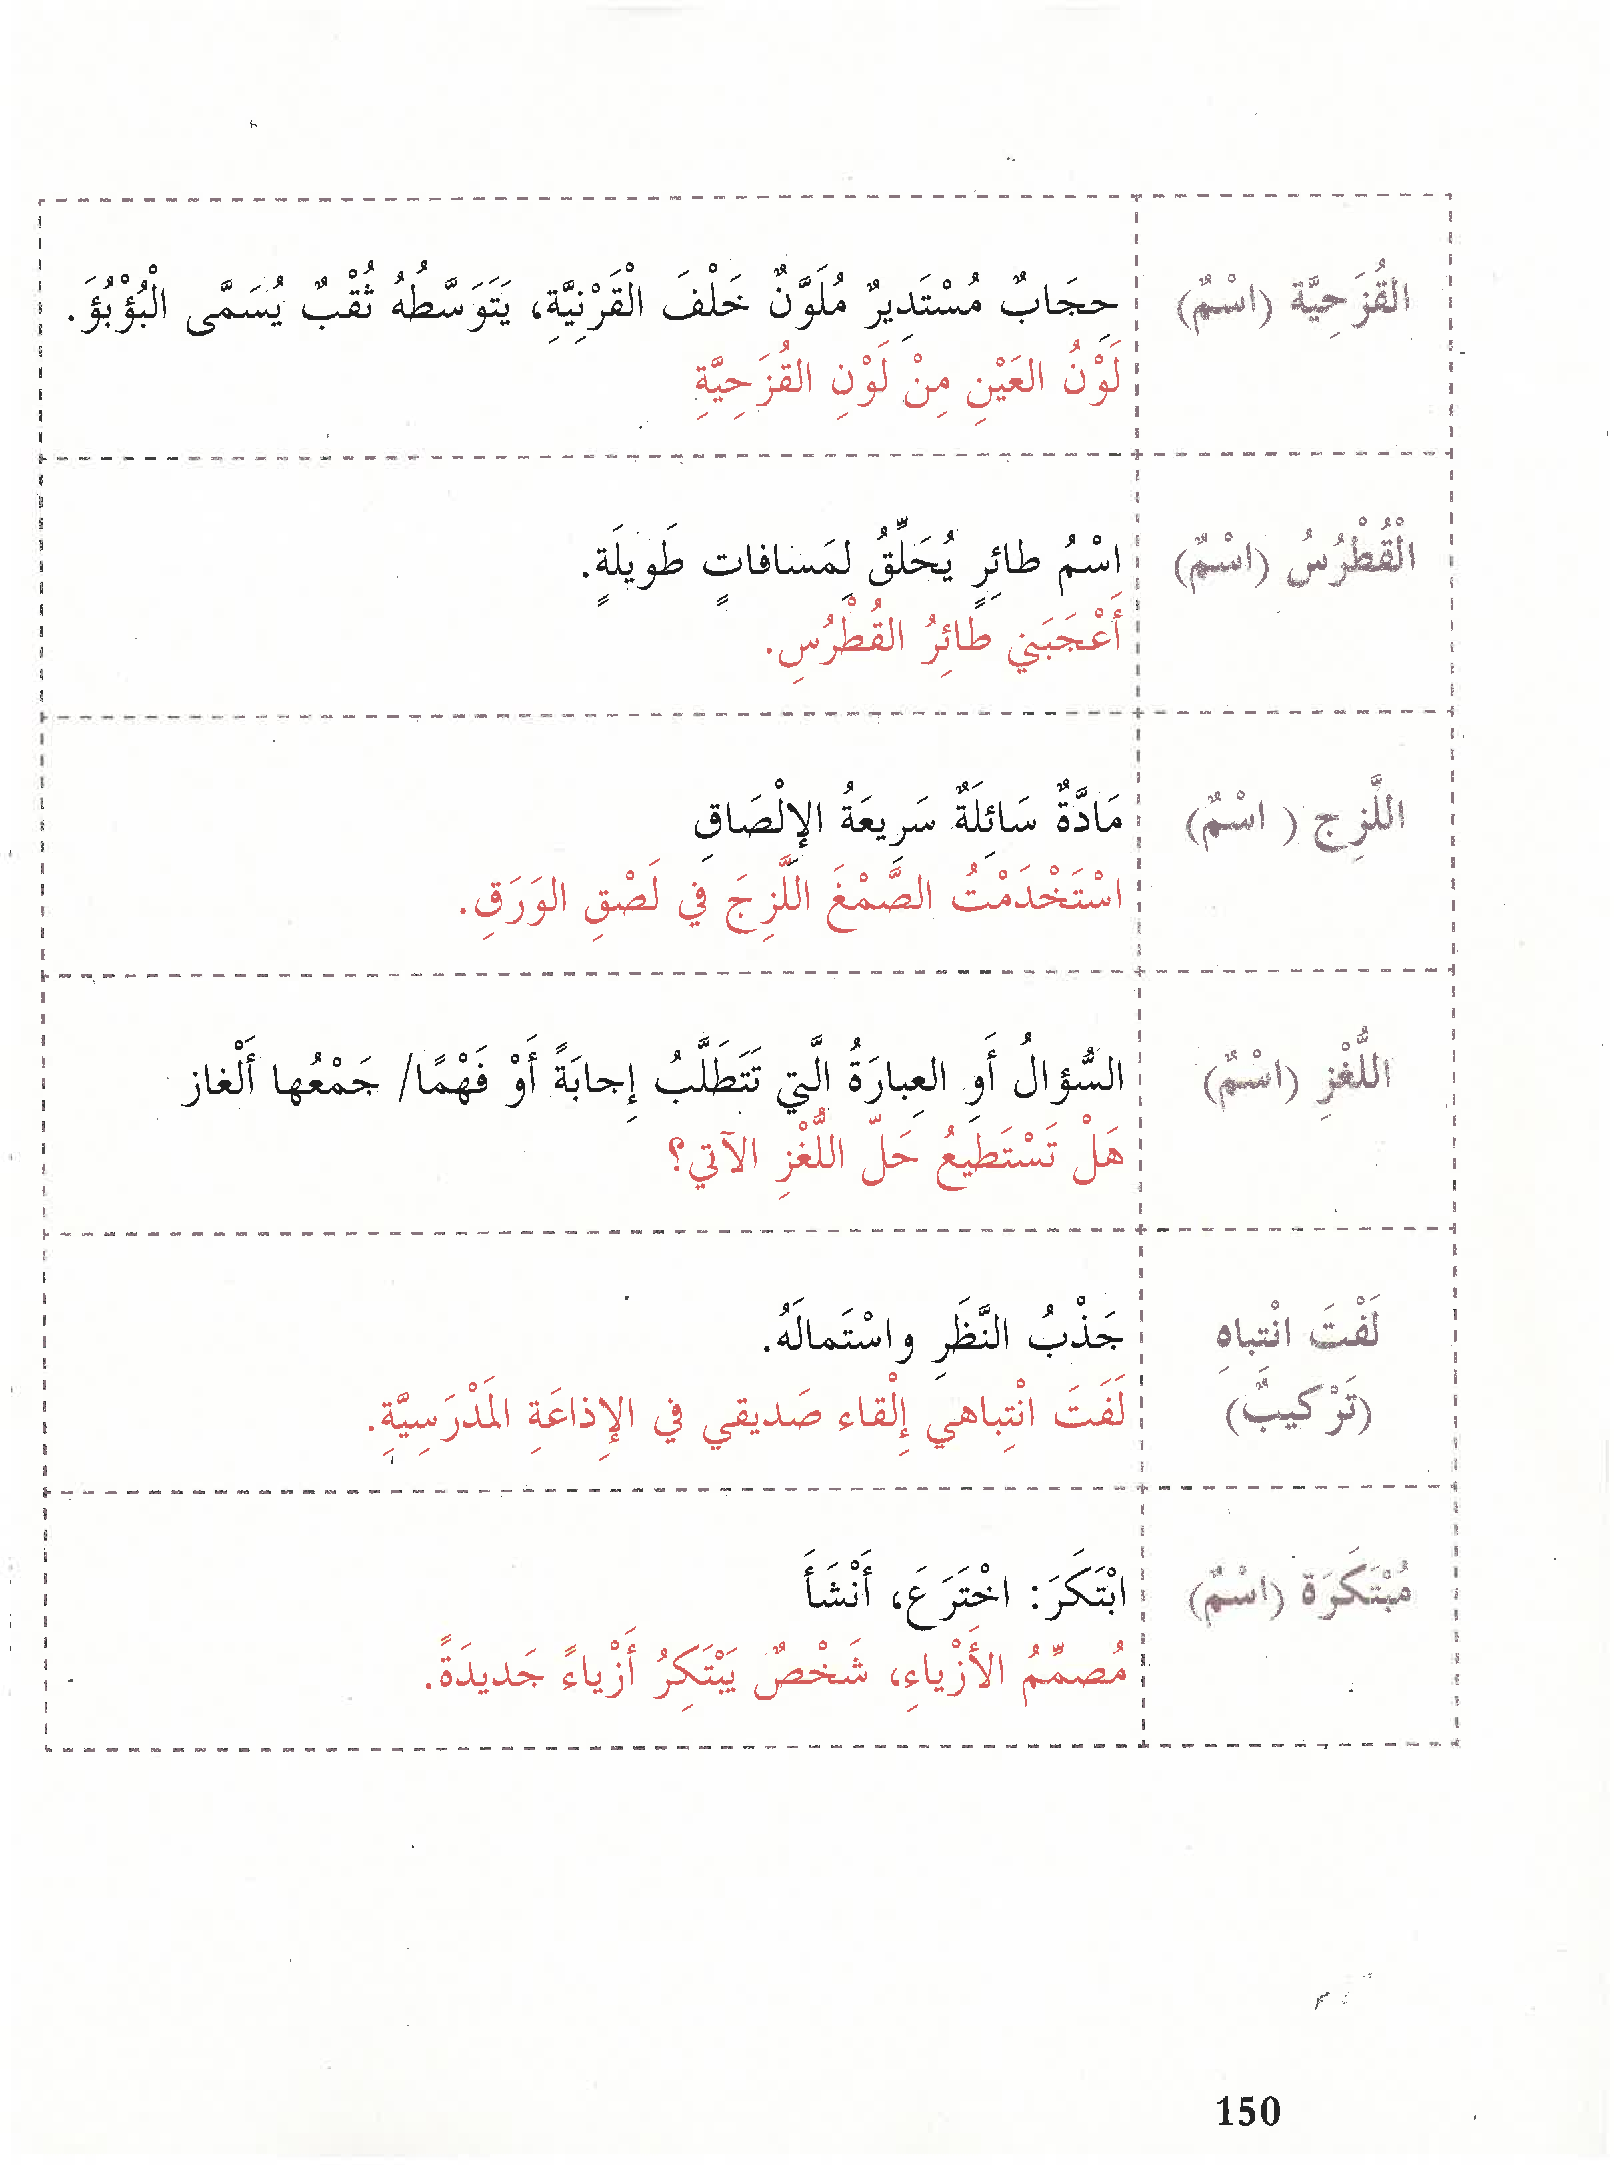 القُزَحِيَّة (اسْمٌ)
حِجَابٌ مُسْتَدِيرٌ مُلَوَّنٌ خَلْفَ القَرْنِيَّةِ، يَتَوَسَّطُهُ ثُقْبٌ يُسَمَّى الْبُؤْبُؤَ.
لَوْنُ العَيْنِ مِنْ لَوْنِ القُزَحِيَّةِ
الْقُطْرُسُ (اسْمٌ)
اسْمُ طائِرٍ يُحَلِّقُ لِمَسافاتٍ طَويلَةٍ.
أَعْجَبَني طائِرُ القُطْرُسِ.
اللَّزِج ( اسْمٌ)
مَادَّةٌ سَائِلَةٌ سَرِيعَةُ الإِلْصَاقِ
اسْتَخْدَمْتُ الصَّمْغَ اللَّزِجَ في لَصْقِ الوَرَقِ.
اللُّغْزِ (اسْمٌ)
السُّؤالُ أَوِ العِبارَةُ الَّتي تَتَطَلَّبُ إِجابَةً أَوْ فَهْمًا/ جَمْعُها أَلْغاز
هَلْ تَسْتَطيعُ حَلّ اللُّغْزِ الآتي؟
لَفْتَ انْتباهِ
(تَرْكيبٌ)
جَذْبُ النَّظَرِ واسْتَمالَهُ.
لَفَتَ انْتِباهي إِلْقاء صَديقي في الإِذاعَةِ المَدْرَسِيَّةِ.
مُبْتَكَرَة (اسْمٌ)
ابْتَكَرَ: اخْتَرَعَ، أَنْشَأَ
مُصمِّمُ الأَزْياءِ، شَخْصٌ يَبْتَكِرُ أَزْياءً جَديدَةً.
150